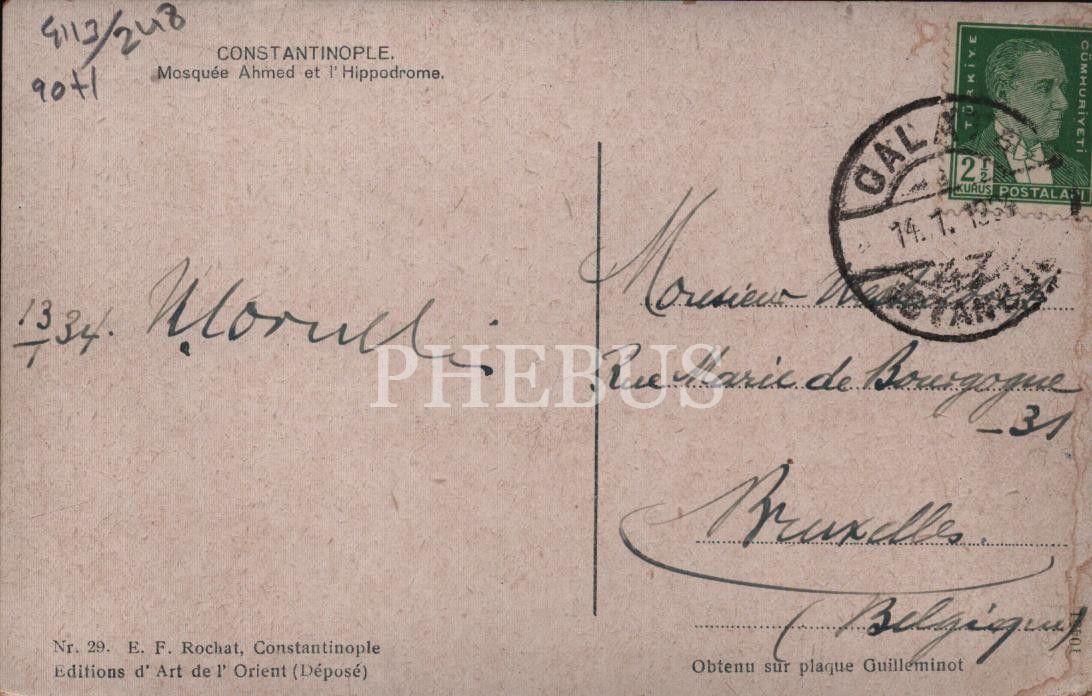 4113/248
90+1
CONSTANTINOPLE.
Mosquée Ahmed et l'Hippodrome.
TÜRKİYE
CÜMHURIYETİ
2 1/2
KURUŞ POSTALARI
GALATA
14.1.1934
ISTANBUL
13/1 34.
Monsieur
Rue Marie de Bourgogne
– 31
Bruxelles.
(Belgique)
PHEBUS
Nr. 29. E. F. Rochat, Constantinople
Editions d' Art de l' Orient (Déposé)
Obtenu sur plaque Guilleminot